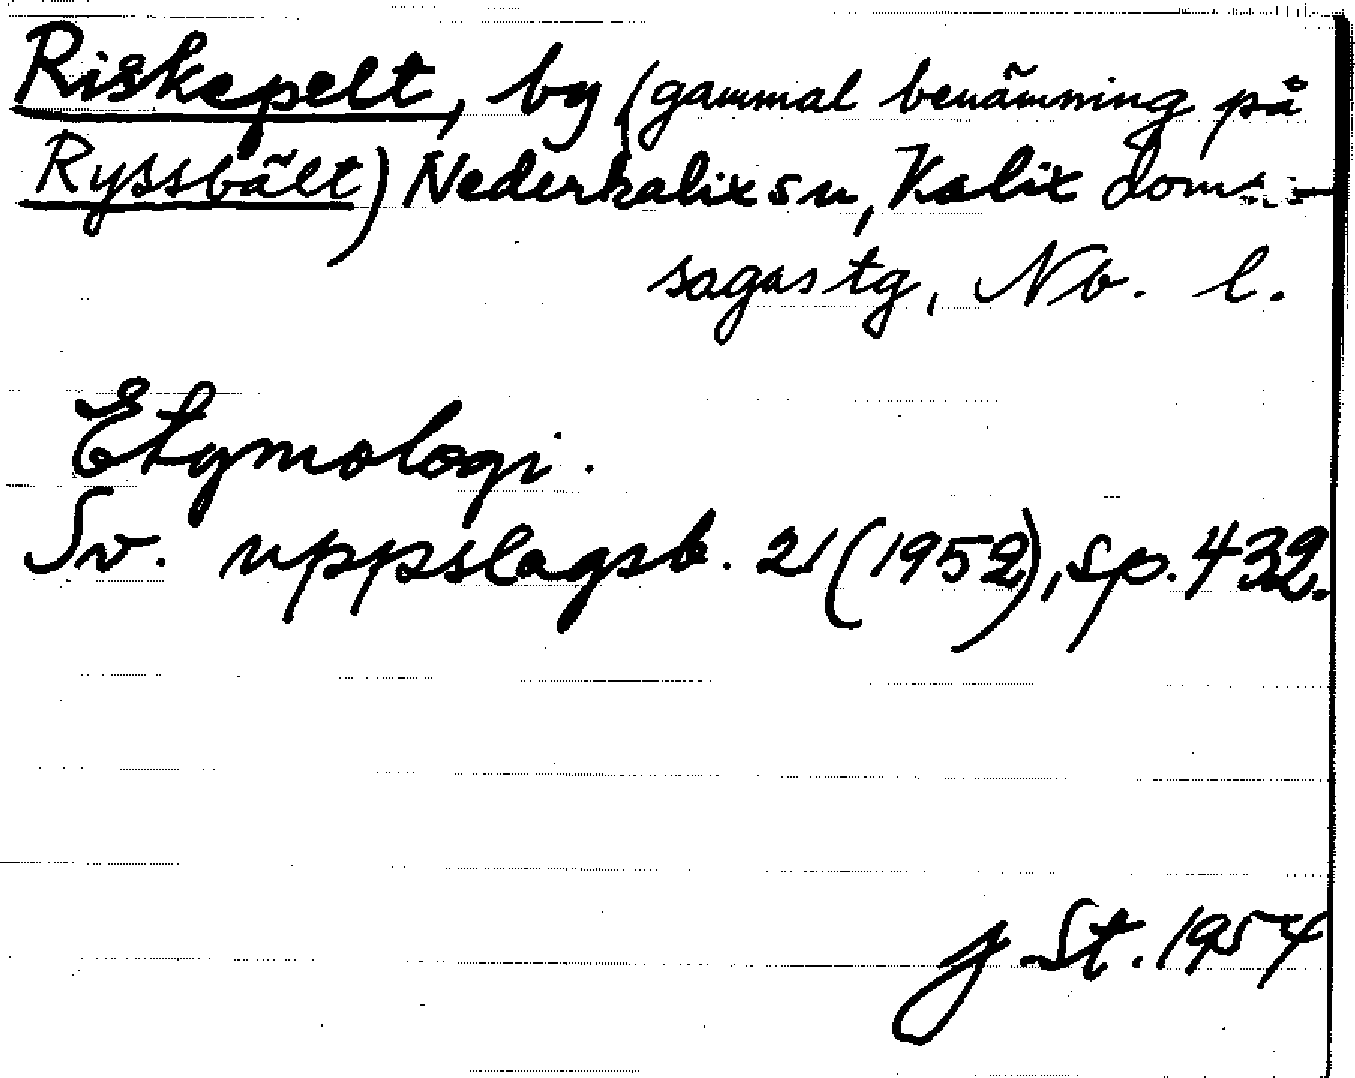 Riskepelt, by (gammal benämning på
Ryssbält) Nederkalix sn, Kalix doms-
sagas tg, Nb. l.
Etymologi.
Sv. uppslagsb. 21 (1952), sp. 432.
J St. 1954